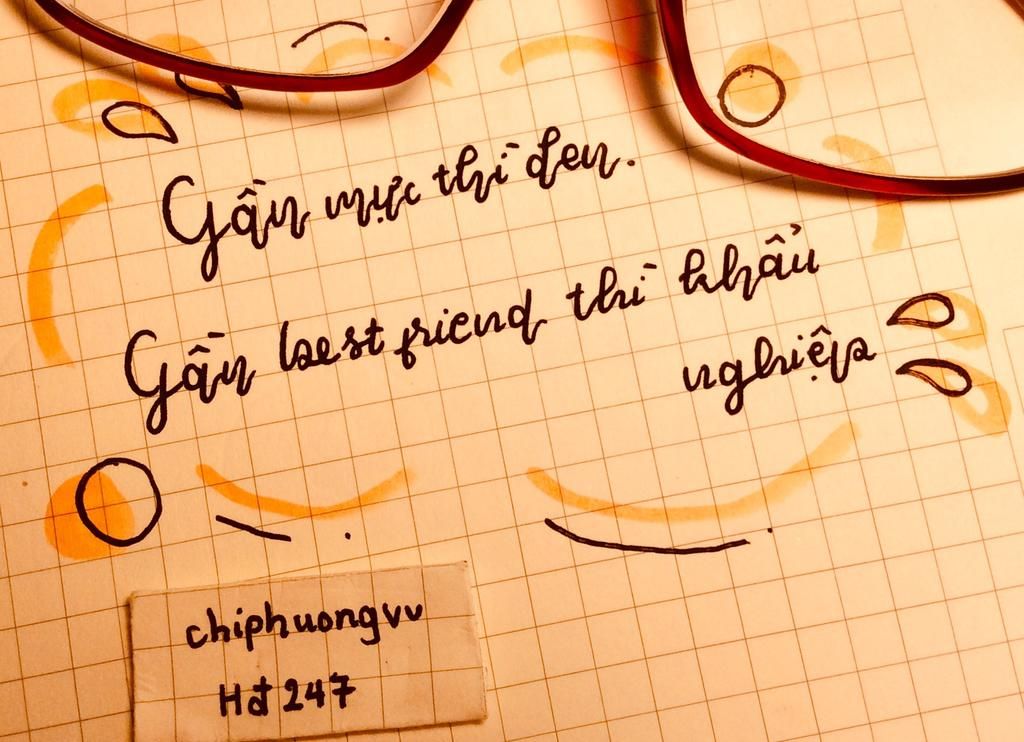 Gần mực thì đen.
Gần best friend thì khẩu
nghiệp
chiphuongvv
Hđ 247